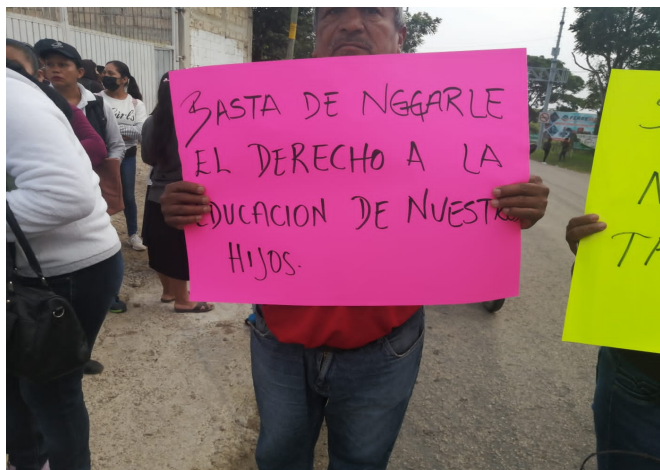 BASTA DE NEGARLE
EL DERECHO A LA
EDUCACION DE NUESTROS
HIJOS.